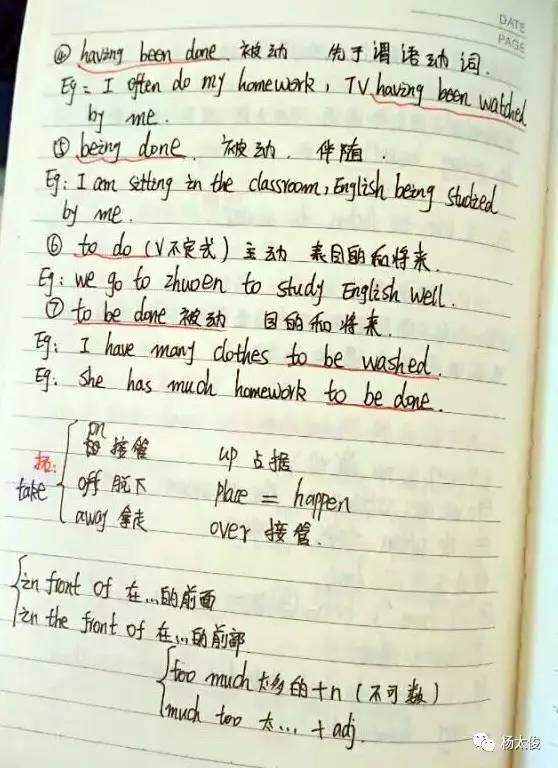 DATE
PAGE
④ having been done 被动 先于谓语动词.
Eg: I often do my homework, TV having been watched
by me.
⑤ being done. 被动. 伴随.
Eg: I am sitting in the classroom, English being studied
by me.
⑥ to do (V不定式) 主动 表目的和将来.
Eg: we go to zhuoen to study English well.
⑦ to be done 被动 目的和将来.
Eg: I have many clothes to be washed.
Eg: She has much homework to be done.
take
on 接管 up 占据
off 脱下 place = happen
away 拿走 over 接管.
in front of 在...的前面
in the front of 在...的前部
too much 太多的+n (不可数)
much too 太... + adj.
杨太俊